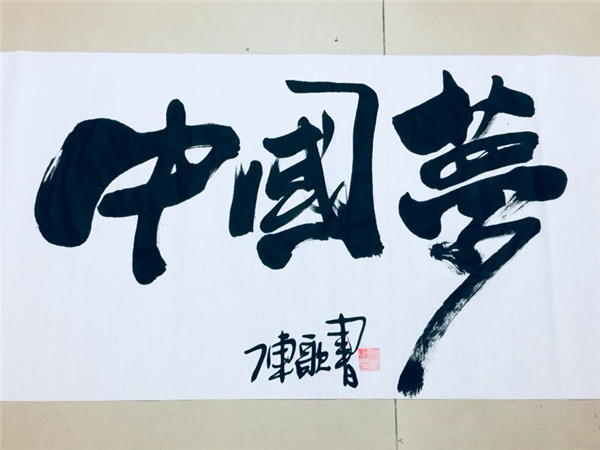 中國夢
陳歌書